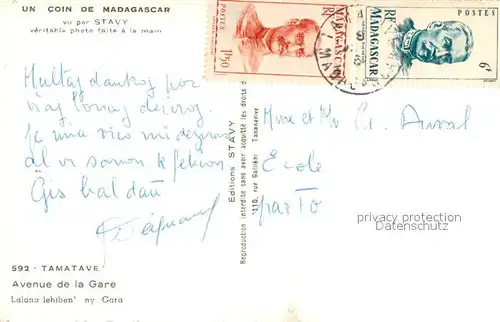 UN COIN DE MADAGASCAR
vu par STAVY
véritable photo faite à la main
Multaj dankoj por
viaj bonaj deziroj.
Je mia vico mi deziras
al vi sanon k feliĉon
Ĝis baldaŭ
592 - TAMATAVE
Avenue de la Gare
Lalana lehiben' ny Gara
Editions STAVY
110, rue Galliéni Tananarive
Reproduction interdite sans avoir acquitté les droits d
POSTES
1F,50
RF
MADAGASCAR
RF
MADAGASCAR
POSTES
6F
Mme et Mr
Ecole
privacy protection
copyrights